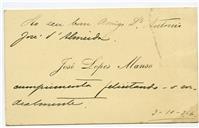 Ao seu bom Amigo Dr. Antonio
José d'Almeida
José Lopes Manso
cumprimenta felicitando-o cor
dealmente.
3-10-926